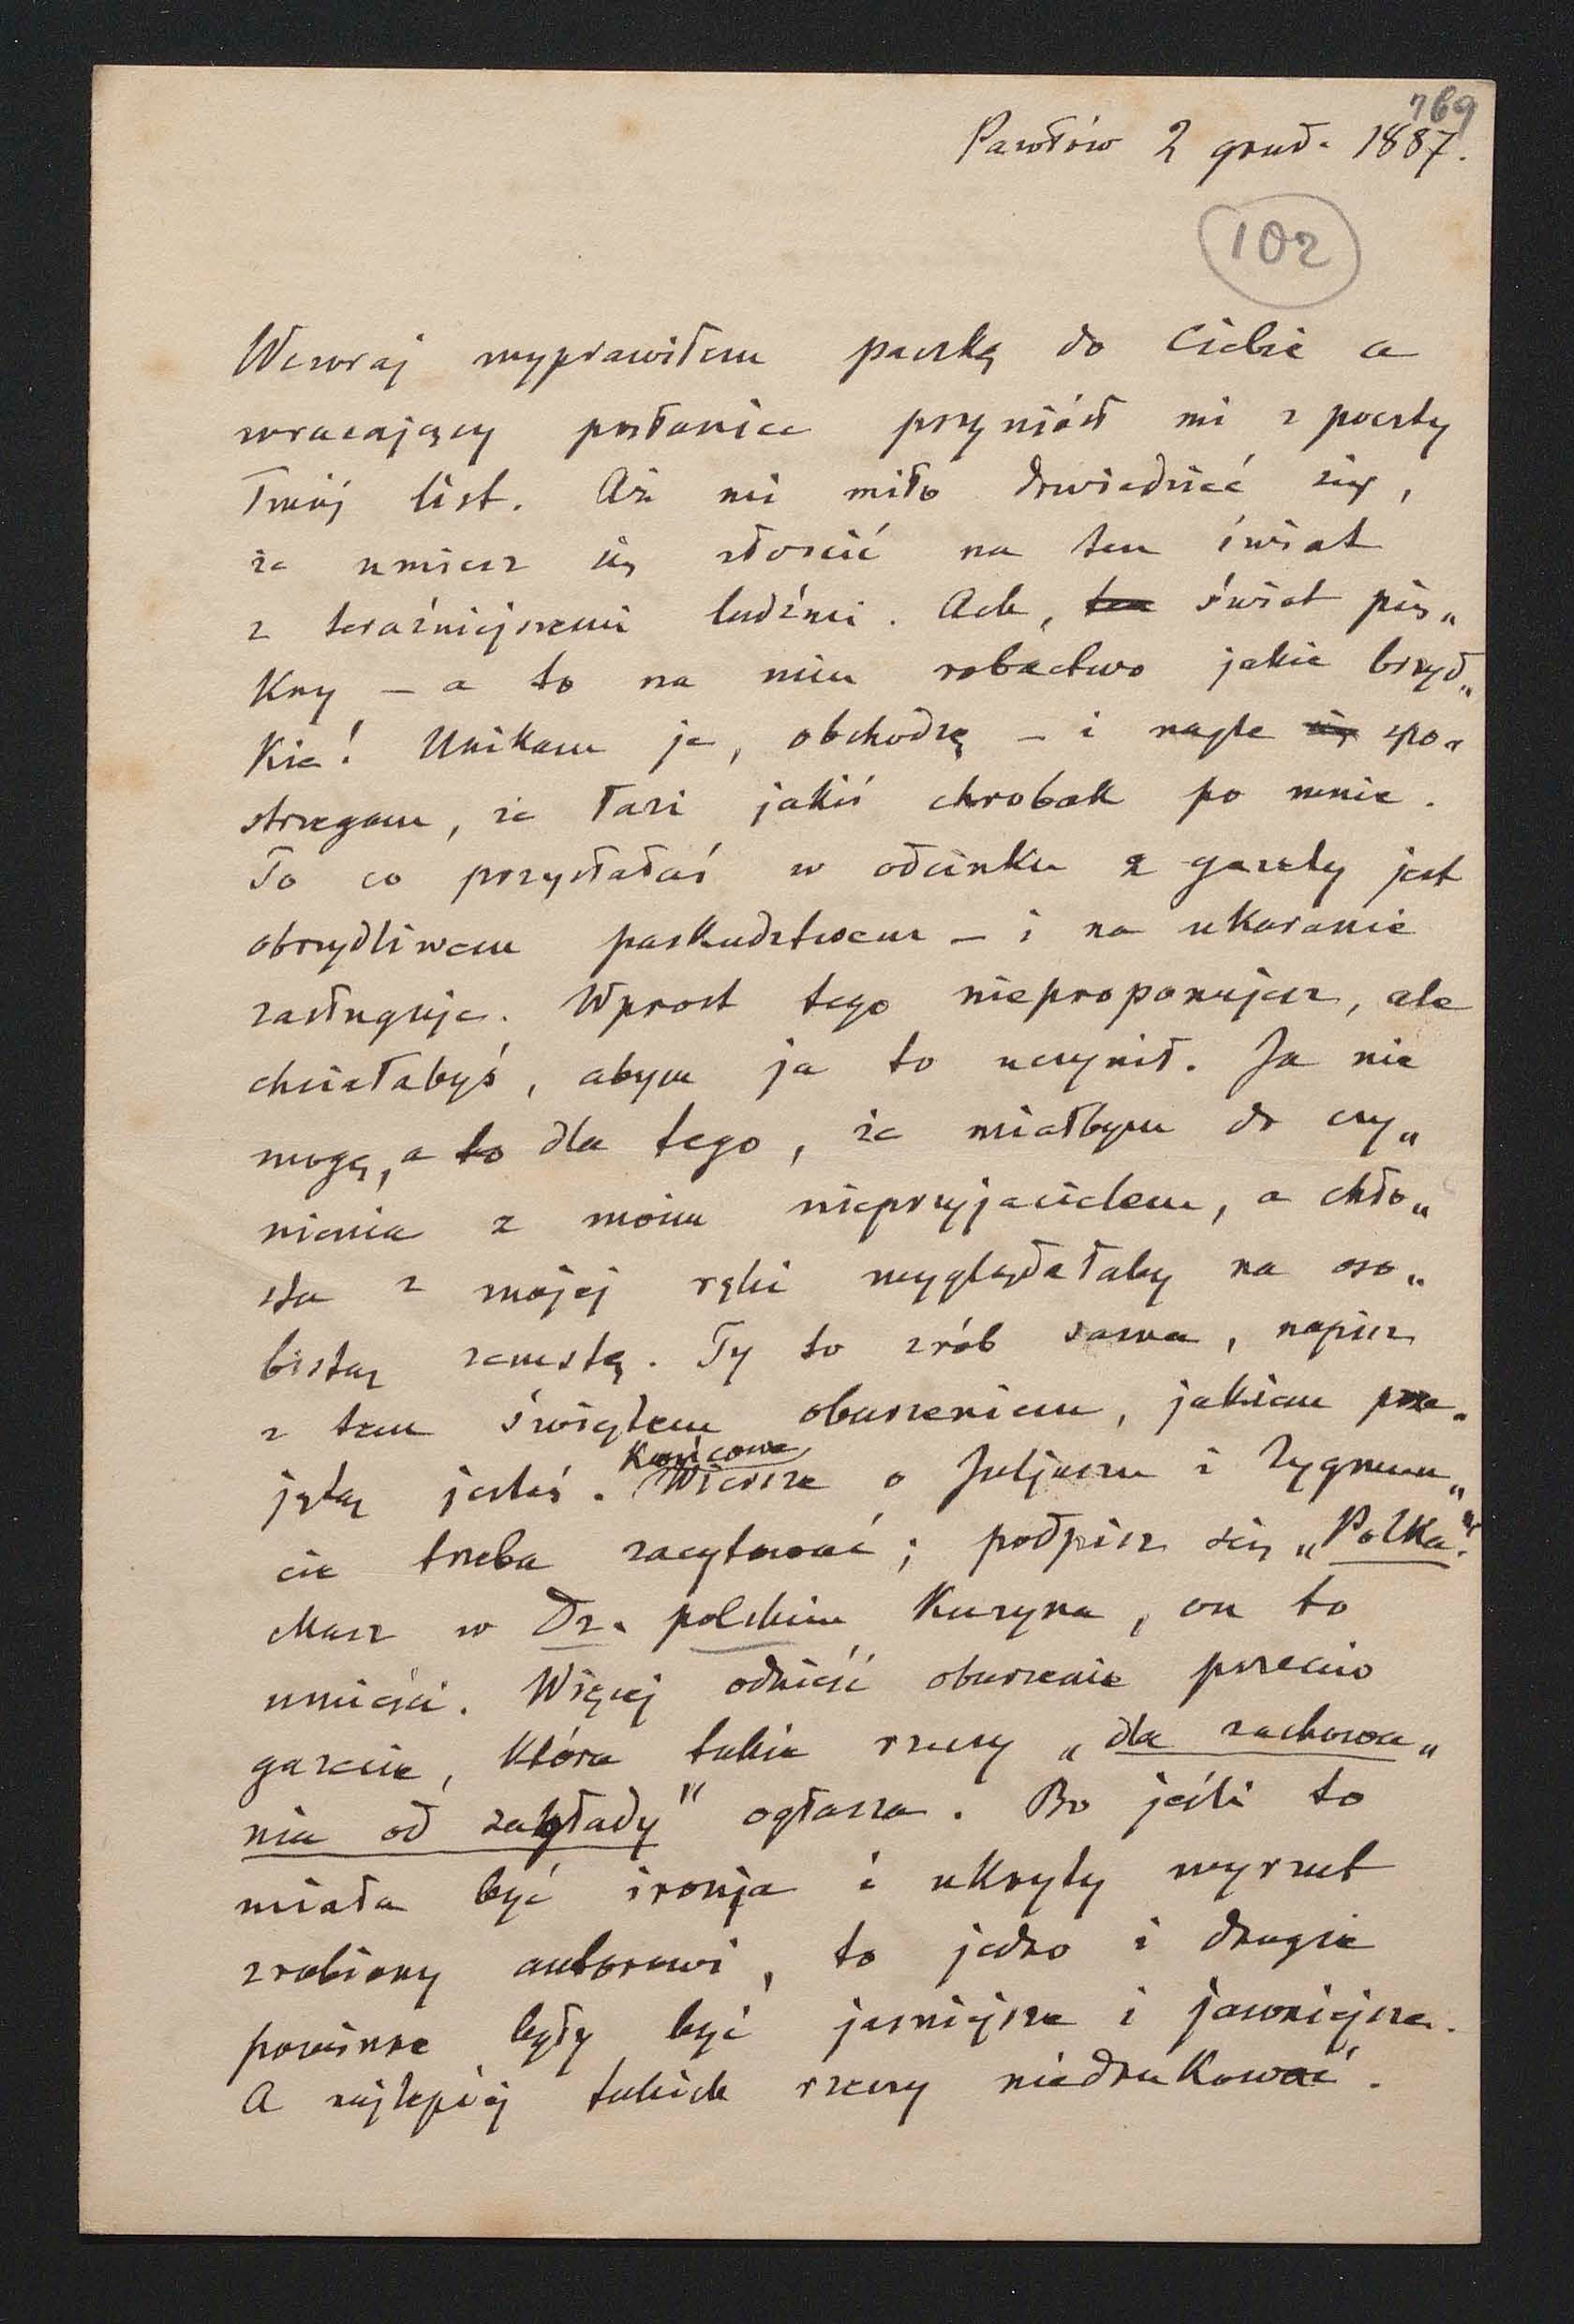 769
Pawłów 2 grud. 1887.
102
Wczoraj wyprawiłem paczkę do Ciebie a
wracający posłaniec przyniósł mi z poczty
Twój list. Aż mi miło dowiedzieć się,
że umiesz się złościć na ten świat
z teraźniejszemi ludźmi. Ach, ten świat pię„
kny – a to na nim robactwo jakie brzyd„
kie! Unikam je, obchodzę – i nagle się spo„
strzegam, że łazi jakiś chrobak po mnie.
To co przysłałaś w odcinku z gazety jest
obrzydliwem paskudztwem – i na ukaranie
zasługuje. Wprost tego nieproponujesz, ale
chciałabyś, abym ja to uczynił. Ja nie
mogę, a to dla tego, że miałbym do czy„
nienia z moim nieprzyjacielem, a chło„
sta z mojej ręki wyglądałaby na oso„
bistą zemstę. Ty to zrób sama, napisz
z tem świętem oburzeniem, jakiem prze„
jętą jesteś. Końcowe Wiersze o Juljuszu i Zygmun„
cie trzeba zacytować; podpisz się „Polka“.
Masz w Dz. polskim Kuzyna, on to
umieści. Więcej odnieść oburzenie przeciw
gazecie, która takie rzeczy „dla zachowa„
nia od zagłady" ogłasza. Bo jeśli to
miała być ironja i ukryty wyrzut
zrobiony autorowi, to jedno i drugie
powinne były być jaśniejsze i jawniejsze.
A najlepiej takich rzeczy niedrukować.